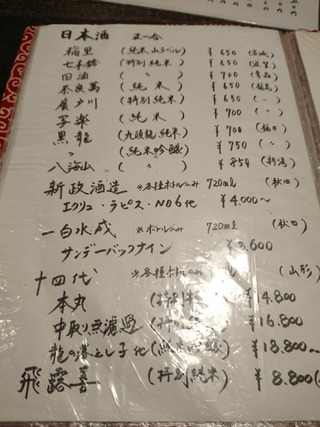 日本酒 正一合
稲里 (純米山ラベル) ¥650 (茨城)
七本鎗 (特別純米) ¥650 (滋賀)
田酒 ( 〃 ) ¥700 (青森)
奈良萬 (純米) ¥650 (福島)
廣戸川 (特別純米) ¥650 (〃)
写楽 (純米) ¥700 (〃)
黒龍 (九頭龍 純米) ¥700 (福井)
(純米吟醸) ¥750 (〃)
八海山 ( 〃 ) ¥850 (新潟)
新政酒造 ※各種ボトルのみ 720ml (秋田)
エクリュ・ラピス・NO6他 ¥4,000〜
一白水成 ※ボトルのみ 720ml (秋田)
サンデーバックナイン ¥ ,600
十四代 ※各種ボトルのみ (山形)
本丸 (特別 ¥14.800
中取り無濾過 ¥16.800
龍の落とし子他 (純米吟醸) ¥18.800〜
飛露喜 (特別純米) ¥8.800